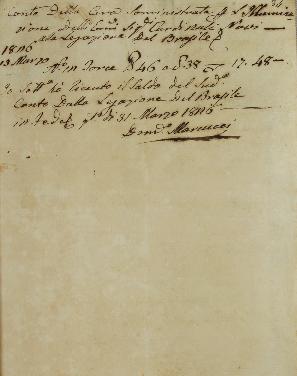 Conto Della Cera Somministrata p. l'Illumina
zione degli Emi. Sigri. Cardinali Novi
alla Legazione Del Brasile
1846
13 Marzo
in Torce 46 a 38 17:48
Io Sotto. ho ricevuto il Saldo del Sudo.
Conto Dalla Legazione Del Brasile
in fede qto. dì 31 Marzo 1846
Domco. Marcucci